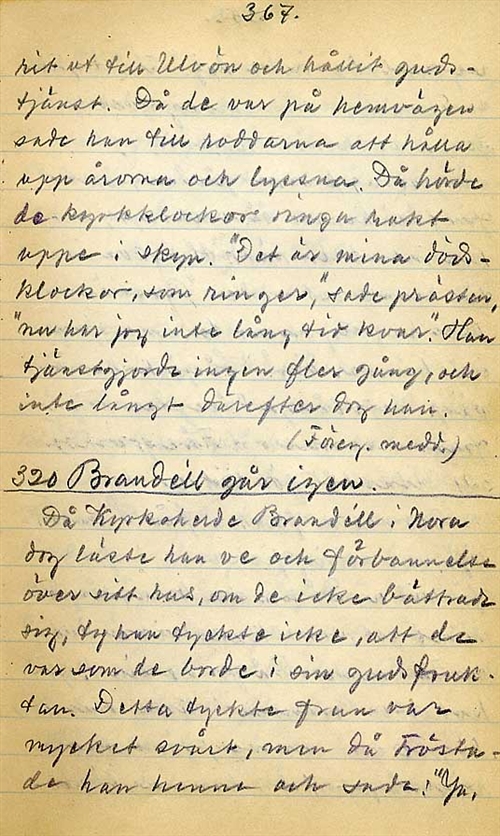 367.
rit ut till Ulvön och hållit guds-
tjänst. Då de var på hemvägen
sade han till roddarna att hålla
upp årorna och lyssna. Då hörde
de kyrkklockor ringa rakt
uppe i skyn. "Det är mina döds-
klockor, som ringer," sade prästen,
"nu har jag inte lång tid kvar". Han
tjänstgjorde ingen fler gång, och
inte långt därefter dog han.
(Föreg. medd.)
320 Brandéll går igen.
Då Kyrkoherde Brandéll i Nora
dog läste han ve och förbannelse
över sitt hus, om de icke bättrade
sig, ty han tyckte icke, att de
var som de borde i sin gudsfruk-
tan. Detta tyckte frun var
mycket svårt, men då trösta-
de han henne och sade: "Ja,